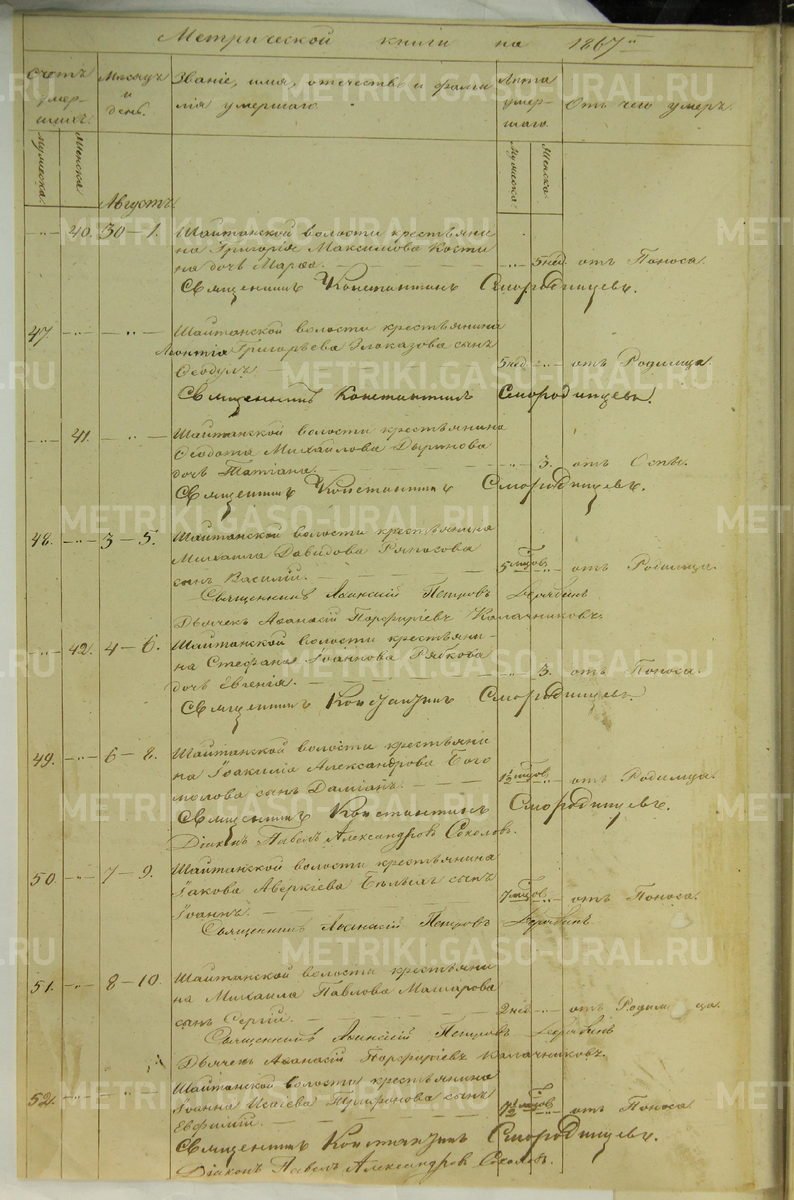 Метрической книги на 1867й
Счетъ умер- шихъ. Мѣсяцъ и день. Званіе, имя, отечество и фами Лѣта умер- шаго. Отъ чего умеръ.
лія умершаго.
Мужеска. Женска. Мужеска. Женска.
Августъ
40. 30 – 1. Шайтанской волости крестьяни
на Григорія Максимова Кости
на дочь Марѳа. 5 нед. отъ Поноса.
Священникъ Константинъ Смородинцевъ.
47. Шайтанской волости крестьянина
Леонтія Григорьева Злоказова сынъ
Ѳеодулъ 5 нед. отъ Родимца.
Священникъ Константинъ Смородинцевъ.
41. Шайтанской волости крестьянина
Ѳеодота Михайлова Дырина
дочь Татіана. 3. отъ Оспы.
Священникъ Константинъ Смородинцевъ.
48. 3 – 5. Шайтанской волости крестьянина
Михаила Давидова
сынъ Василій. 5 мцов. отъ Родимца.
Священникъ Аѳанасій Петровъ Дерябинъ
Дьячекъ Аѳанасій Порфиріевъ Калачниковъ.
42. 4 – 6. Шайтанской волости крестьяни-
на Стефана Іоаннова Рябкова
дочь Евгенія. 3. отъ Поноса.
Священникъ Константинъ Смородинцевъ
49. 6 – 8. Шайтанской волости крестьяни
на Іоакима Александрова Бого
молова сынъ Даміанъ. 1½ мцов. отъ Родимца.
Священникъ Константинъ Смородинцевъ.
Діаконъ Павелъ Александровъ Соколовъ.
50. 7 – 9. Шайтанской волости крестьянина
Іакова Аверкіева Бѣлыхъ сынъ
Іоаннъ. 7 мцов. отъ Поноса.
Священникъ Аѳанасій Петровъ Дерябинъ
51. 8 – 10. Шайтанской волости крестьяни
на Михаила Павлова Машарова
сынъ Сергій. 2 нед. отъ Родимца.
Священникъ Аѳанасій Петровъ Дерябинъ
Дьячекъ Аѳанасій Порфиріевъ Калачниковъ.
52. Шайтанской волости крестьянина
Іоанна Исаіева сынъ
Евфимій. 7½ мцов. отъ Поноса
Священникъ Константинъ Смородинцевъ.
Діаконъ Павелъ Александровъ Соколовъ.
METRIKI.GASO-URAL.RU